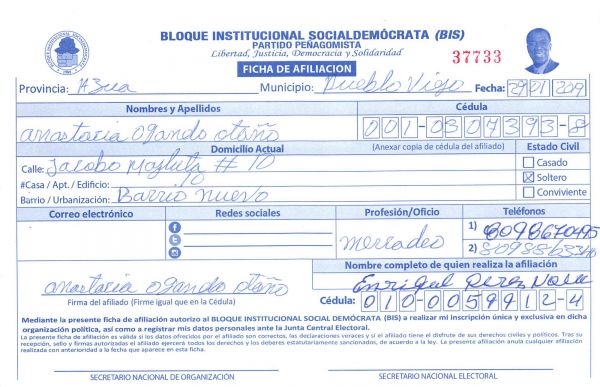 BLOQUE INSTITUCIONAL SOCIALDEMÓCRATA (BIS)
PARTIDO PEÑAGOMISTA
Libertad, Justicia, Democracia y Solidaridad
37733
FICHA DE AFILIACION
Provincia: Azua Municipio: Pueblo Viejo Fecha: 2019
Nombres y Apellidos Cédula
anastacia Ogando Otaño 001-0307393-8
Domicilio Actual (Anexar copia de cédula del afiliado) Estado Civil
Calle: Jacobo Majluta # 10 Casado
#Casa / Apt. / Edificio: 10 Soltero
Barrio / Urbanización: Barrio nuevo Conviviente
Correo electrónico Redes sociales Profesión/Oficio Teléfonos
1) 8098670495
mercadeo 2)
Nombre completo de quien realiza la afiliación
anastacia Ogando Otaño Enrriqul Perez
Firma del afiliado (Firme igual que en la Cédula) Cédula: 010-0059912-4
Mediante la presente ficha de afiliación autorizo al BLOQUE INSTITUCIONAL SOCIAL DEMÓCRATA (BIS) a realizar mi inscripción única y exclusiva en dicha
organización política, así como a registrar mis datos personales ante la Junta Central Electoral.
La presente ficha de afiliación es válida si los datos ofrecidos por el afiliado son correctos, las declaraciones veraces y si el afiliado tiene el disfrute de sus derechos civiles y políticos. Tras su
recepción, sello y firmas autorizadas el afiliado ejercerá todos los derechos y los deberes estatutariamente sancionados, de acuerdo a la ley. La presente afiliación anula cualquier afiliación
realizada con anterioridad a la fecha que aparece en esta ficha.
SECRETARIO NACIONAL DE ORGANIZACIÓN SECRETARIO NACIONAL ELECTORAL